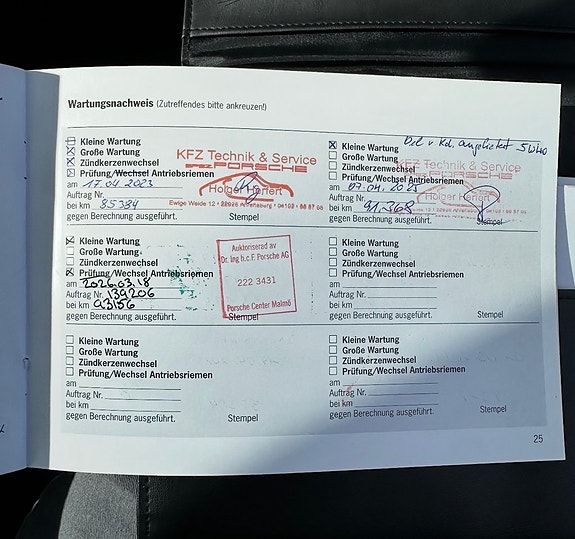 Wartungsnachweis (Zutreffendes bitte ankreuzen!)
Kleine Wartung
Große Wartung
Zündkerzenwechsel
Prüfung/Wechsel Antriebsriemen
am 17.04.2023
Auftrag Nr.
bei km 85384
gegen Berechnung ausgeführt.
Stempel
KFZ Technik & Service
PORSCHE
Holger Herfert
Ewige Weide 12 • 22926 Ahrensburg • 04102 - 88 87 08
Öl v. Kd. angeliefert 5W40
Kleine Wartung
Große Wartung
Zündkerzenwechsel
Prüfung/Wechsel Antriebsriemen
am 07.04.2025
Auftrag Nr.
bei km 91.368
gegen Berechnung ausgeführt.
Stempel
KFZ Technik & Service
PORSCHE
Holger Herfert
Kleine Wartung
Große Wartung
Zündkerzenwechsel
Prüfung/Wechsel Antriebsriemen
am 2026.03.18
Auftrag Nr. 139206
bei km 93156
gegen Berechnung ausgeführt.
Stempel
Auktoriserad av
Dr. Ing h.c.F. Porsche AG
222 3431
Porsche Center Malmö
Kleine Wartung
Große Wartung
Zündkerzenwechsel
Prüfung/Wechsel Antriebsriemen
am
Auftrag Nr.
bei km
gegen Berechnung ausgeführt.
Stempel
Kleine Wartung
Große Wartung
Zündkerzenwechsel
Prüfung/Wechsel Antriebsriemen
am
Auftrag Nr.
bei km
gegen Berechnung ausgeführt.
Stempel
Kleine Wartung
Große Wartung
Zündkerzenwechsel
Prüfung/Wechsel Antriebsriemen
am
Auftrag Nr.
bei km
gegen Berechnung ausgeführt.
Stempel
25